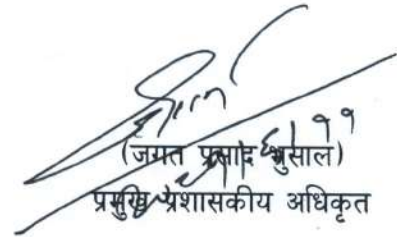 (जगत प्रसाद भुसाल)
प्रमुख प्रशासकीय अधिकृत